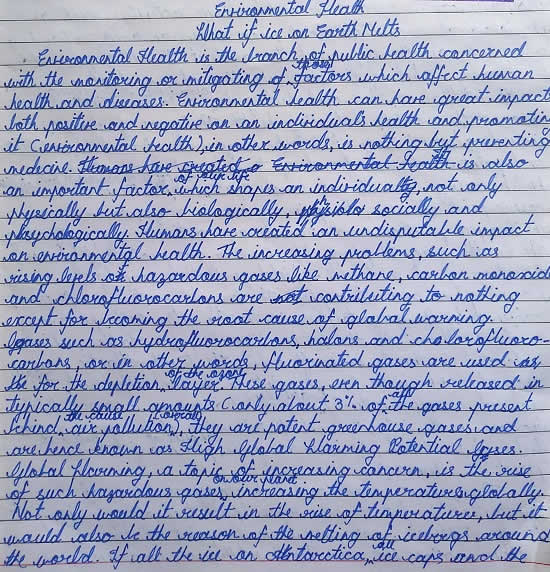 Environmental Health
What if ice on Earth Melts
Environmental Health is the branch of public health concerned
with the monitoring or mitigating of those factors which affect human
health and diseases. Environmental health can have great impact
both positive and negative on an individual's health and promoting
it (environmental health), in other words, is nothing but preventing
medicine. Humans have created Environmental Health is also
an important factor of our life which shapes an individual, not only
physically but also biologically, socially and
phsychologically. Humans have created an undisputable impact
on environmental health. The increasing problems, such as
rising levels of hazardous gases like methane, carbon monoxide
and chlorofluorocarbons are not contributing to nothing
except for becoming the root cause of global warming.
Gases such as hydrofluorocarbons, halons and cholorofluoro-
carbons, or in other words, fluorinated gases are used as
the for the depletion of the ozone layer. These gases, even though released in
typically small amounts (only about 3% of all the gases present
behind the cause causing air pollution), they are potent greenhouse gases and
are hence known as High Global Warming Potential Gases.
Global Warming, a topic of increasing cancern, is the rise
of such hazardous gases on our planet, increasing the temperatures globally.
Not only would it result in the rise of temperatures, but it
would also be the reason of the melting of icebergs around
the world. If all the ice on Antarctica, all ice caps and the